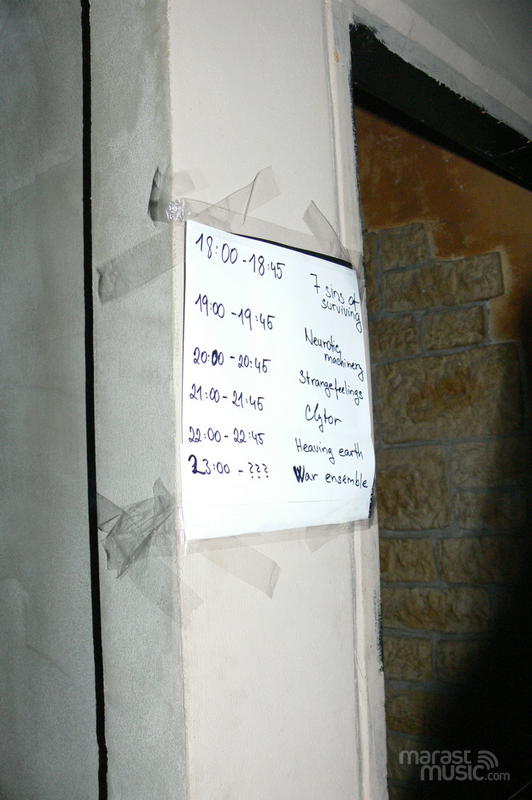 18:00 - 18:45 7 sins of
surviving
19:00 - 19:45 Neurotic
machinery
20:00 - 20:45 Strangefeelings
21:00 - 21:45 Clytor
22:00 - 22:45 Heaving earth
23:00 - ??? War ensemble
marast
music.com